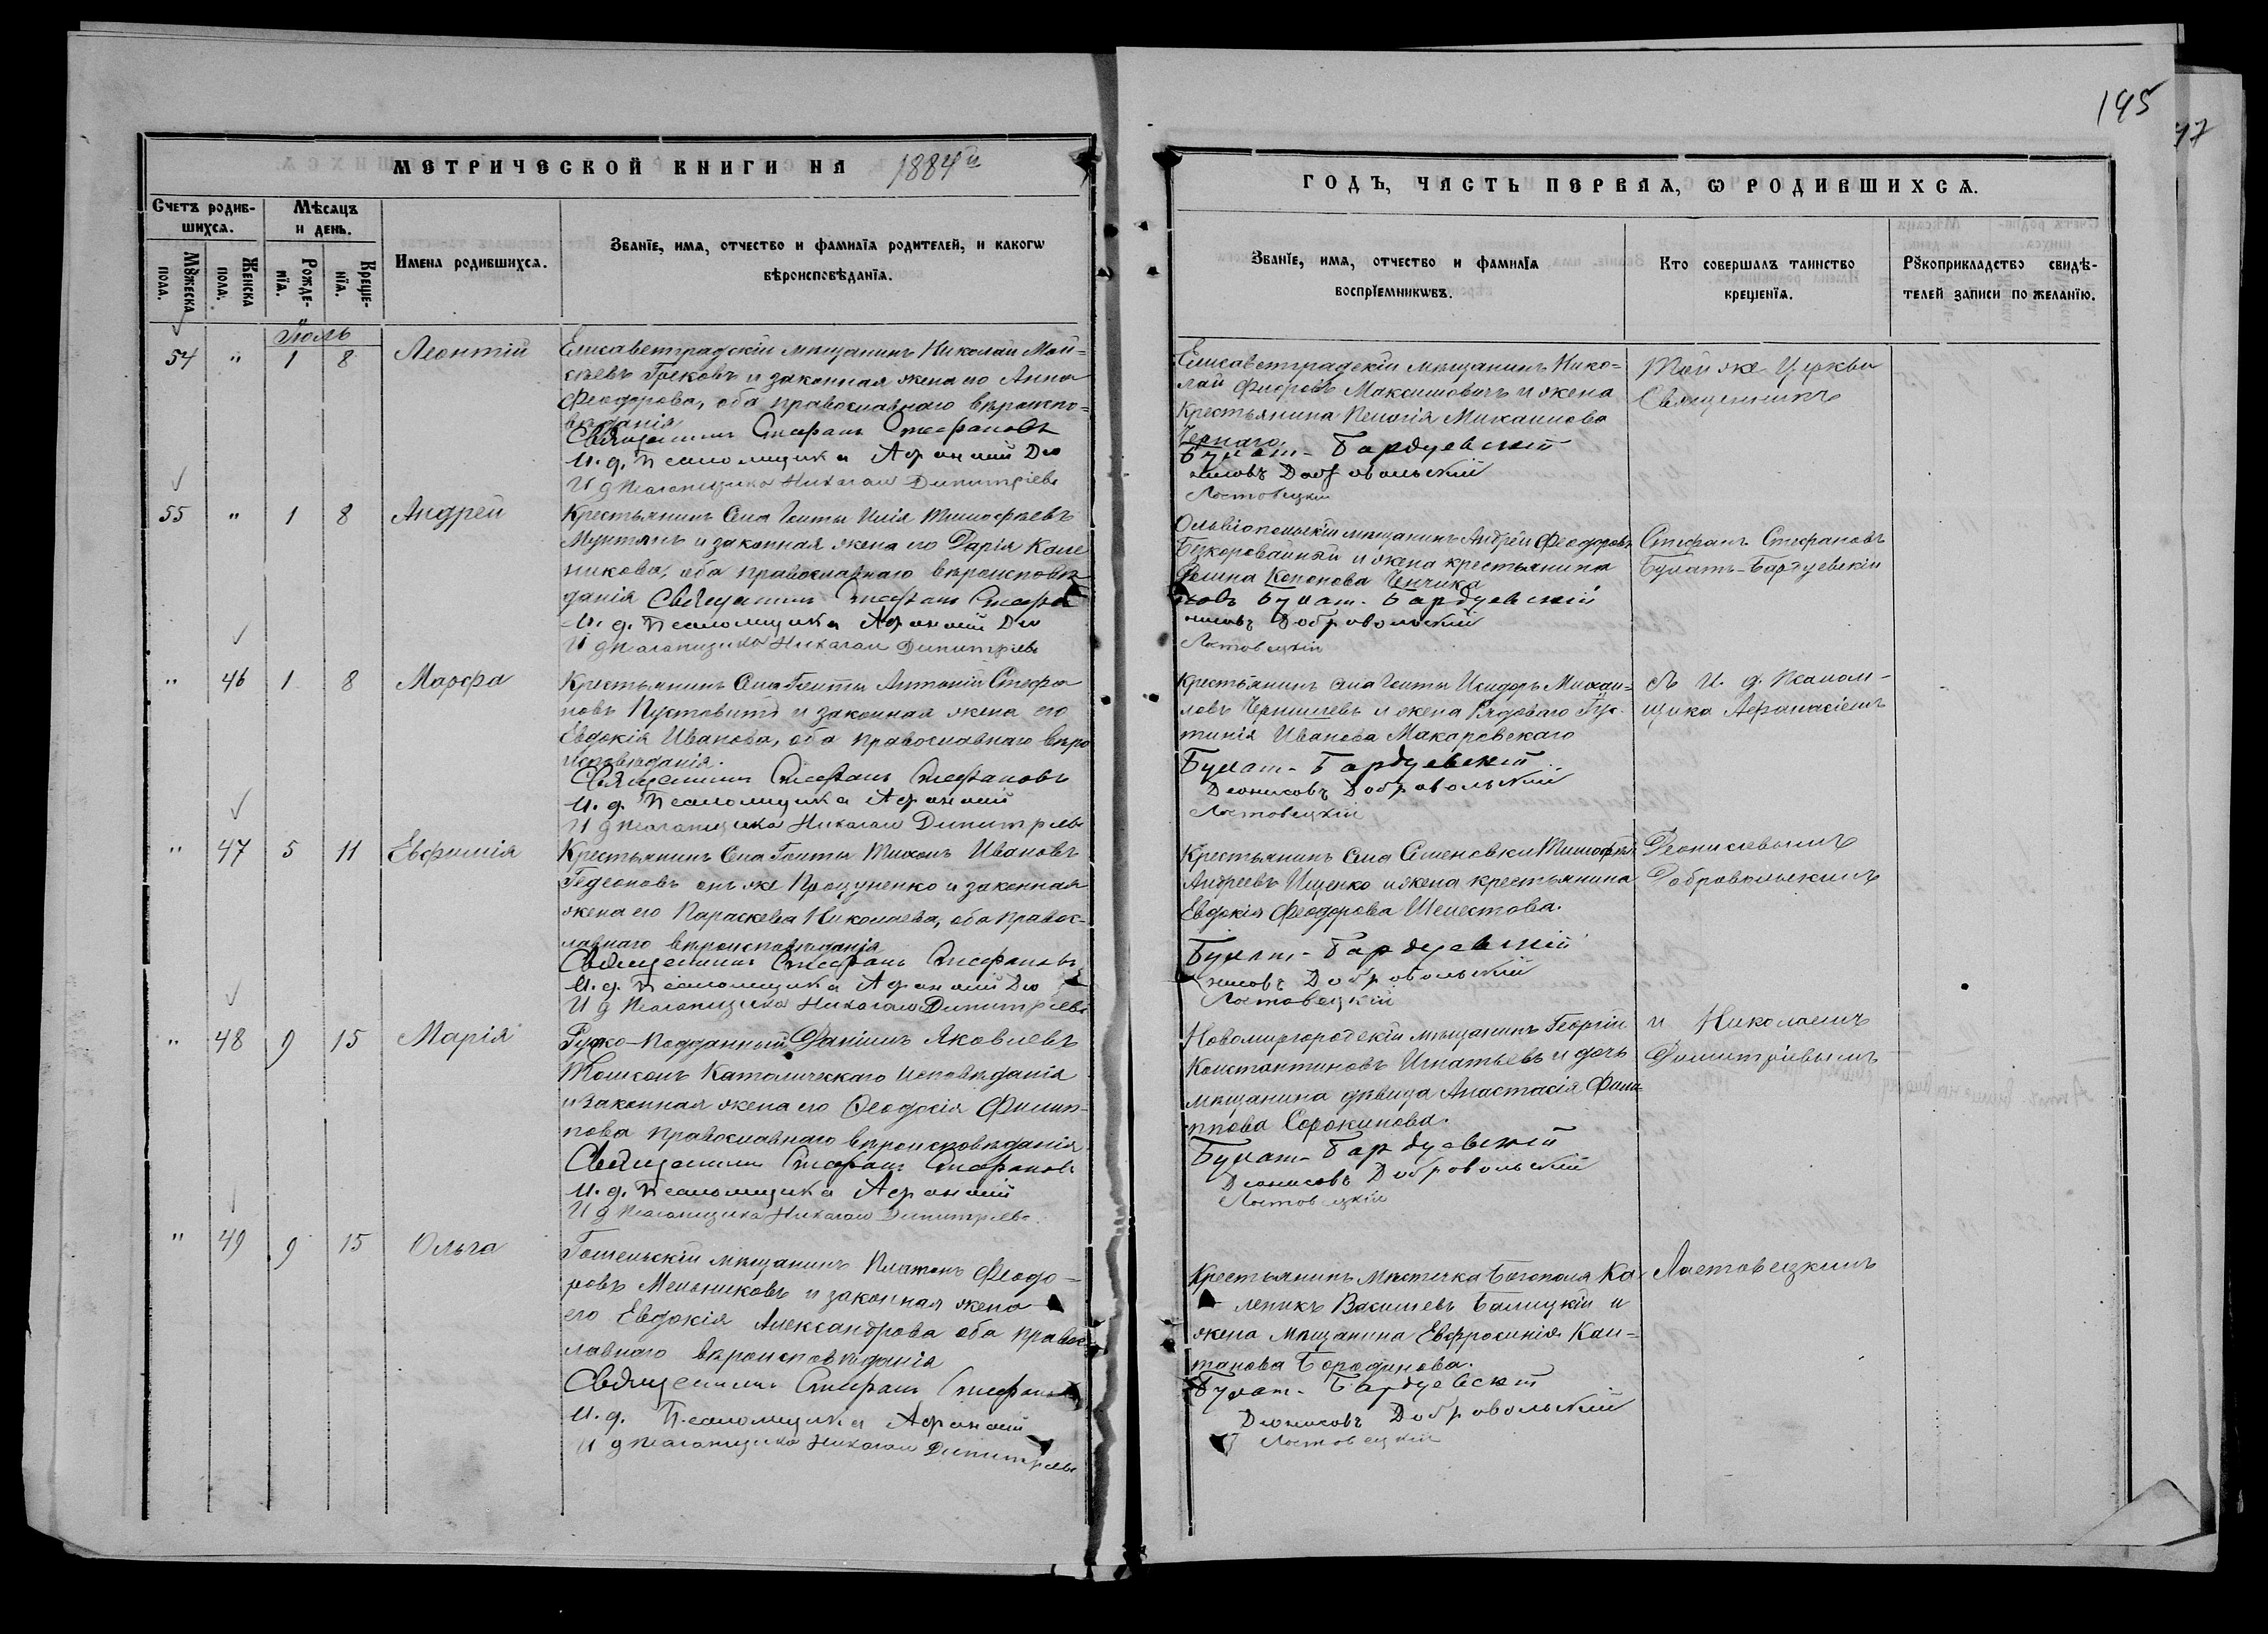 195
47
МЕТРИЧЕСКОЙ КНИГИ НА 1884й
ГОДЪ, ЧАСТЬ ПЕРВАЯ, Ѡ РОДИВШИХСѦ.
Счетъ родив-
шихсѧ.
Мѣсѧцъ
и день.
Мꙋжеска
пола.
Женска
пола.
Рожде-
нїѧ.
Креще-
нїѧ.
Имена родившихсѧ.
Званїе, имѧ, отчество и фамилїѧ родителей, и какогѡ
вѣроисповѣданїѧ.
Званїе, имѧ, отчество и фамилїѧ
воспрїемникѡвъ.
Кто совершалъ таинство
крещенїѧ.
Рꙋкоприкладство свидѣ-
телей записи по желанїю.
Іюль
54 " 1 8 Леонтій
Елисаветградскій мѣщанинъ Николай Мой-
сѣевъ Грековъ и законная жена его Анна
Феодорова, оба православнаго вѣроиспо-
вѣданія
Священникъ Стефанъ Стефановъ
И. д. Псаломщика Афанасій Дио
И д Псаломщика Николай Димитріевъ
Елисаветградскій мѣщанинъ Нико-
лай Фиоровъ Максимовичъ и жена
Крестьянина Пелагія Михаилова
Чернаго.
Булат-Бардуевскій
нисовъ Добровольскій
Ластовецкій
Той же Церкви
Священникъ
55 " 1 8 Андрей
Крестьянинъ Села Голты Илія Тимофѣевъ
Мунтянъ и законная жена его Дарія Коле
никова, оба православнаго вѣроисповѣ
данія Священникъ Стефанъ Стефа
И. д. Псаломщика Афанасій Дио
И д Псаломщика Николай Димитріевъ
Ольвіопольскій мѣщанинъ Андрей Феодоровъ
Безкоровайный и жена крестьянина
Фелина Кононова Ченчика
новъ Булат-Бардуевскій
нисовъ Добровольскій
Ластовецкій
Стефанъ Стефановъ
Булатъ-Бардуевскій
" 46 1 8 Марфа
Крестьянинъ Села Голты Антоній Стефа
новъ Пустовитъ и законная жена его
Евдокія Иванова, оба православнаго вѣро
исповѣданія.
Священникъ Стефанъ Стефановъ
И. д. Псаломщика Афанасій
И д Псаломщика Николай Димитріевъ
Крестьянинъ села Голты Исидоръ Михаи-
ловъ Чернишевъ и жена Рядоваго Іус-
тинія Иванова Макаровскаго
Булат-Бардуевскій
Дионисовъ Добровольскій
Ластовецкій
съ И. д. Псалом-
щика Афанасіемъ
" 47 5 11 Евфимія
Крестьянинъ Села Голты Тихонъ Ивановъ
Гедеоновъ онъ же Процуненко и законная
жена его Параскева Николаева, оба правос-
лавнаго вѣроисповѣданія
Священникъ Стефанъ Стефановъ
И. д. Псаломщика Афанасій Дио
И д Псаломщика Николай Димитріевъ
Крестьянинъ Села Семеновки Тимофей
Андреевъ Ищенко и жена крестьянина
Евдокія Феодорова Шелестова.
Булат-Бардуевскій
нисовъ Добровольскій
Ластовецкій
Деонисовымъ
Добровольскимъ
" 48 9 15 Марія
Руско-Подданный Даніилъ Яковлевъ
Томсонъ Католическаго исповѣданія
и Законная жена его Феодосія Филип-
пова православнаго вѣроисповѣданія
Священникъ Стефанъ Стефановъ
И. д. Псаломщика Афанасій
И д Псаломщика Николай Димитріевъ
Новомиргородскій мѣщанинъ Георгій
Константиновъ Игнатьевъ и дочь
мѣщанина дѣвица Анастасія Фили-
ппова Сорокинова.
Булат-Бардуевскій
Дионисовъ Добровольскій
Ластовецкій
и Николаемъ
Димитріевымъ
" 49 9 15 Ольга
Гомельскій мѣщанинъ Платонъ Феодо-
ровъ Мельниковъ и законная жена
его Евдокія Александрова оба правос-
лавнаго вѣроисповѣданія
Священникъ Стефанъ Стефановъ
И. д. Псаломщика Афанасій
И д Псаломщика Николай Димитріевъ
Крестьянинъ Мѣстечка Богополя Ка-
леникъ Васильевъ Балицкій и
жена мѣщанина Евфросинія Кап-
танова Бородинова.
Булат-Бардуевскій
Дионисовъ Добровольскій
Ластовецкій
Ластовецкимъ